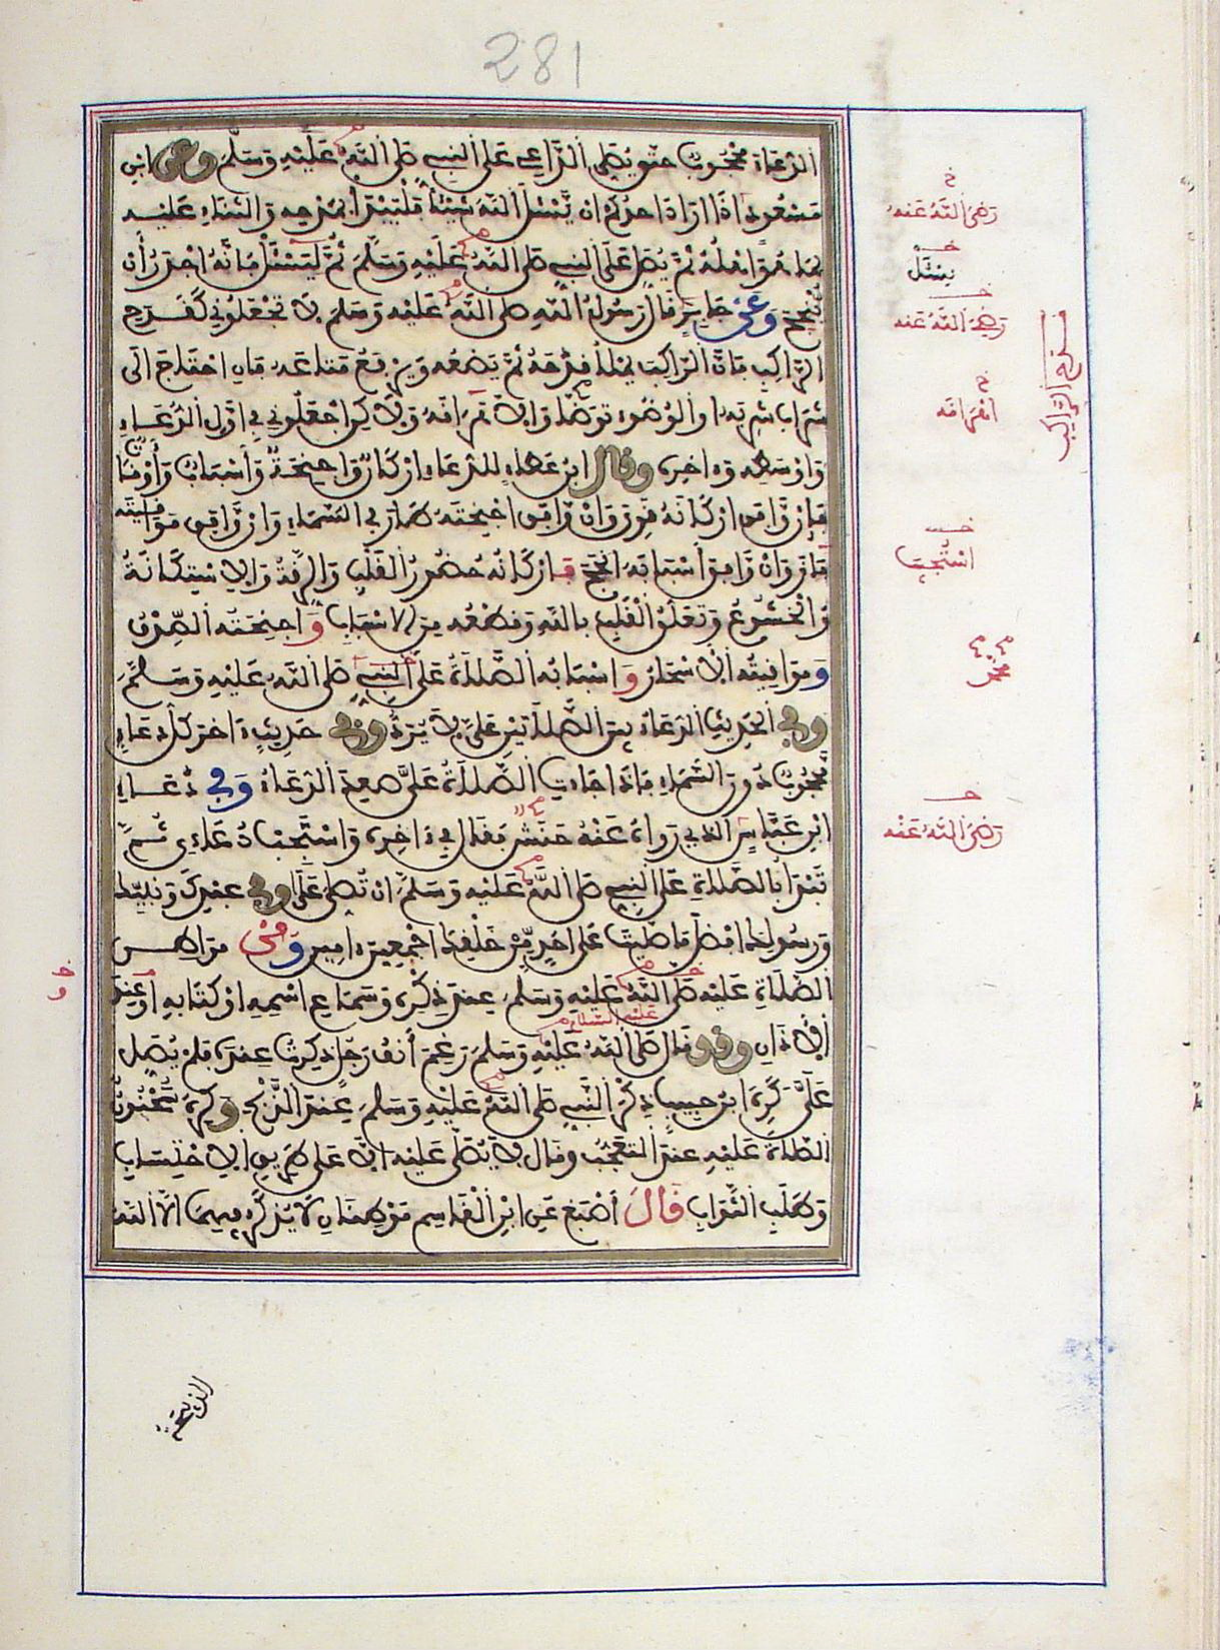 281
الدعاء محجوب حتى يصلي الداعي على النبي صلى الله عليه وسلم وعن ابن
مسعود اذا اراد احدكم ان يسئل الله شيئا فليبدأ بمدحه والثناء عليه
بما هو اهله ثم يصل على النبي صلى الله عليه وسلم ثم ليسئل فإنه اجدر أن
ينجح وعن جابر قال رسول الله صلى الله عليه وسلم لا تجعلوني كقدح
الراكب فان الراكب يملأ قدحه ثم يضعه ويرفع متاعه فان احتاج الى
شراب شربه او الوضوء توضأ والا هراقه ولاكن اجعلوني في اول الدعاء
واوسطه وءاخره وقال ابن عطاء للدعاء اركان واجنحة وأسباب وأوقات
فإن وافق اركانه قوي وان وافق اجنحته طار في السماء وان وافق مواقيته
فاز وان وافق أسبابه انجح فاركانه حضور القلب والرقة والاستكانة
والخشوع وتعلق القلب بالله وقطعه من الاسباب واجنحته الصدق
ومواقيته الاسحار واسبابه الصلاة على النبي صلى الله عليه وسلم
وفي الحديث الدعاء بين الصلاتين علي لا يرد وفي حديث ءاخر كل دعاء
محجوب دون السماء فاذا جاءت الصلاة علي صعد الدعاء وفي دعاء
ابن عباس الذي رواه عنه حنش فقال في ءاخره واستجب دعاءي ثم
تبدأ بالصلاة على النبي صلى الله عليه وسلم ان تصلي على محمد عبدك ونبيك
ورسولك افضل ما صليت على احد من خلقك اجمعين ءامين ومن مواطن
الصلاة عليه صلى الله عليه وسلم عند ذكره وسماع اسمه او كتابه او عند
الأذان وقد قال صلى الله عليه وسلم رغم أنف رجل ذكرت عنده فلم يصل
عليه السلام
علي وكره ابن حبيب ذكر النبي صلى الله عليه وسلم عند الذبح وكره سحنون
الصلاة عليه عند التعجب وقال لا يصلى عليه الا على طريق الاحتساب
وطلب الثواب قال أصبغ عن ابن القاسم موطنان لا يذكر فيهما الا الله
رضي الله عنه
يسئل
رضي الله عنه
اهراقه
استجب
محمد
رضي الله عنه
الذبيحة